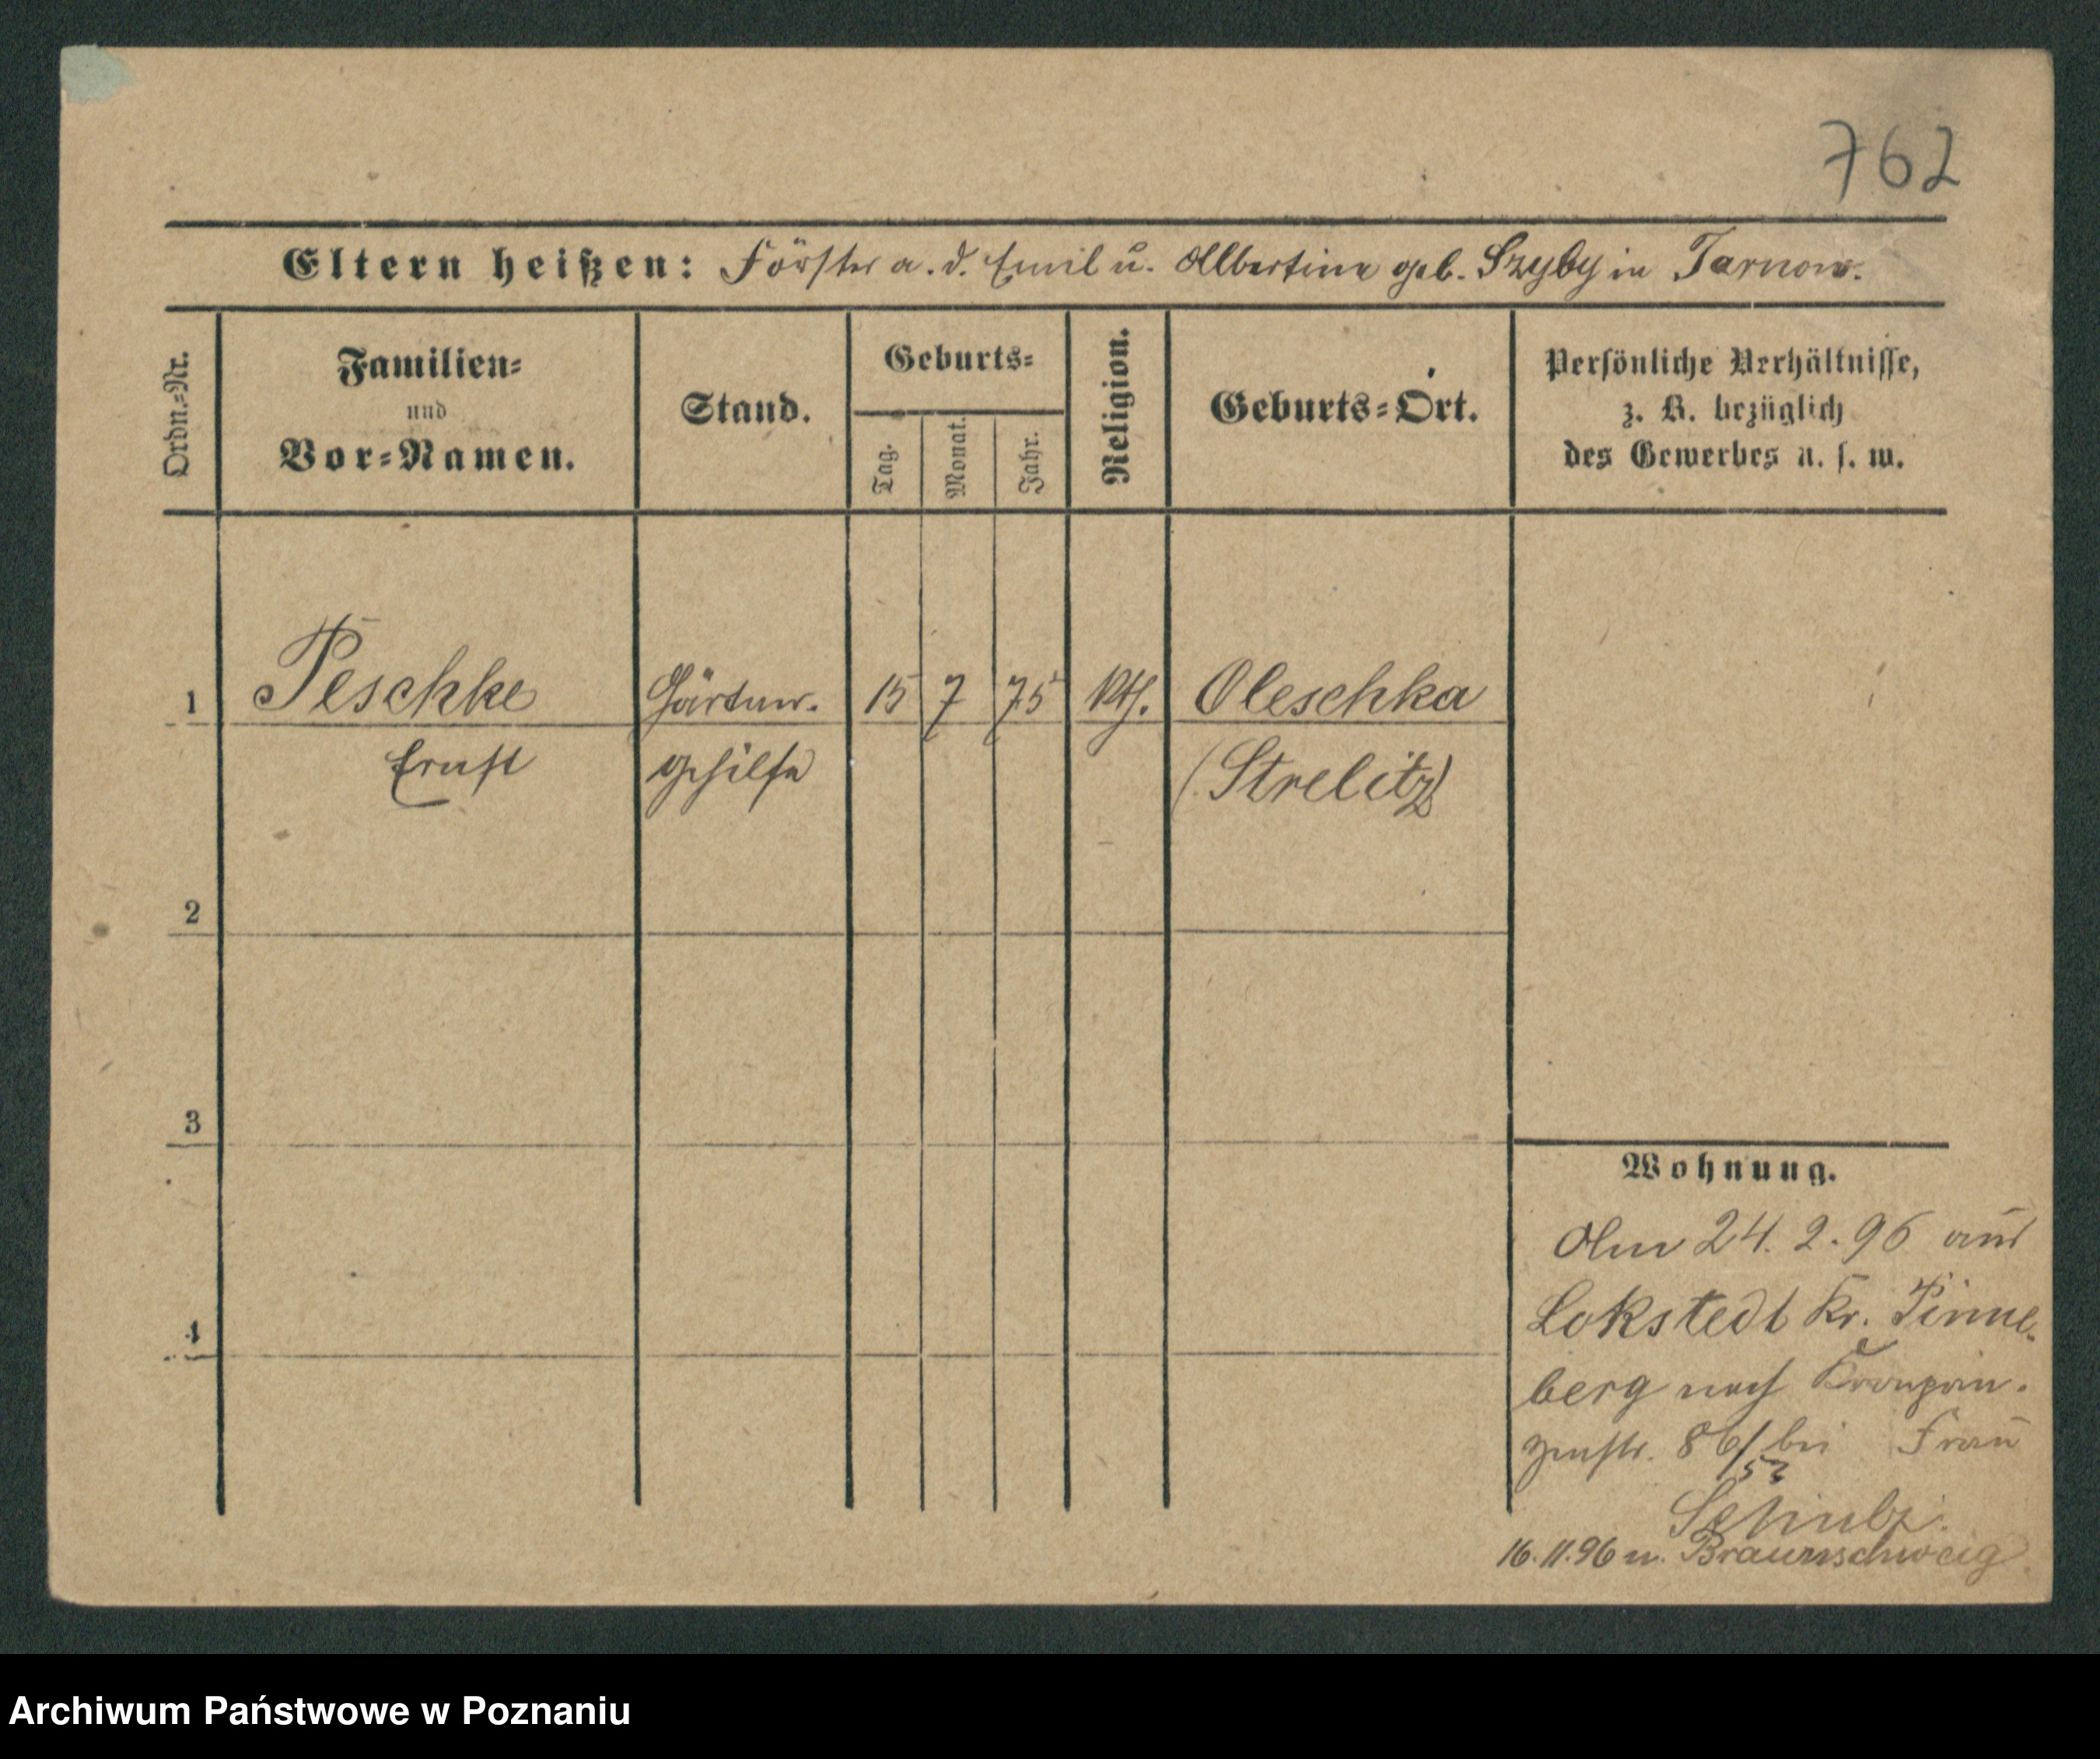 762
Eltern heißen: Förster a. d. Emil u. Albertine geb. Szyby in Tarnow.
Ordn.-Nr.
Familien-
und
Vor-Namen.
Stand.
Geburts-
Tag.
Monat.
Jahr.
Religion.
Geburts-Ort.
Persönliche Verhältnisse,
z. B. bezüglich
des Gewerbes u. s. w.
1 Peschke Gärtner- 15 7 75 kth. Oleschka
Ernst gehilfe (Strelitz)
2
3
4
Wohnung.
Am 24. 2. 96 aus
Lokstedt Kr. Pinne-
berg nach Kronprin-
zenstr. 86/ bei Frau
53
Schulz.
16.11.96 n. Braunschweig
Archiwum Państwowe w Poznaniu